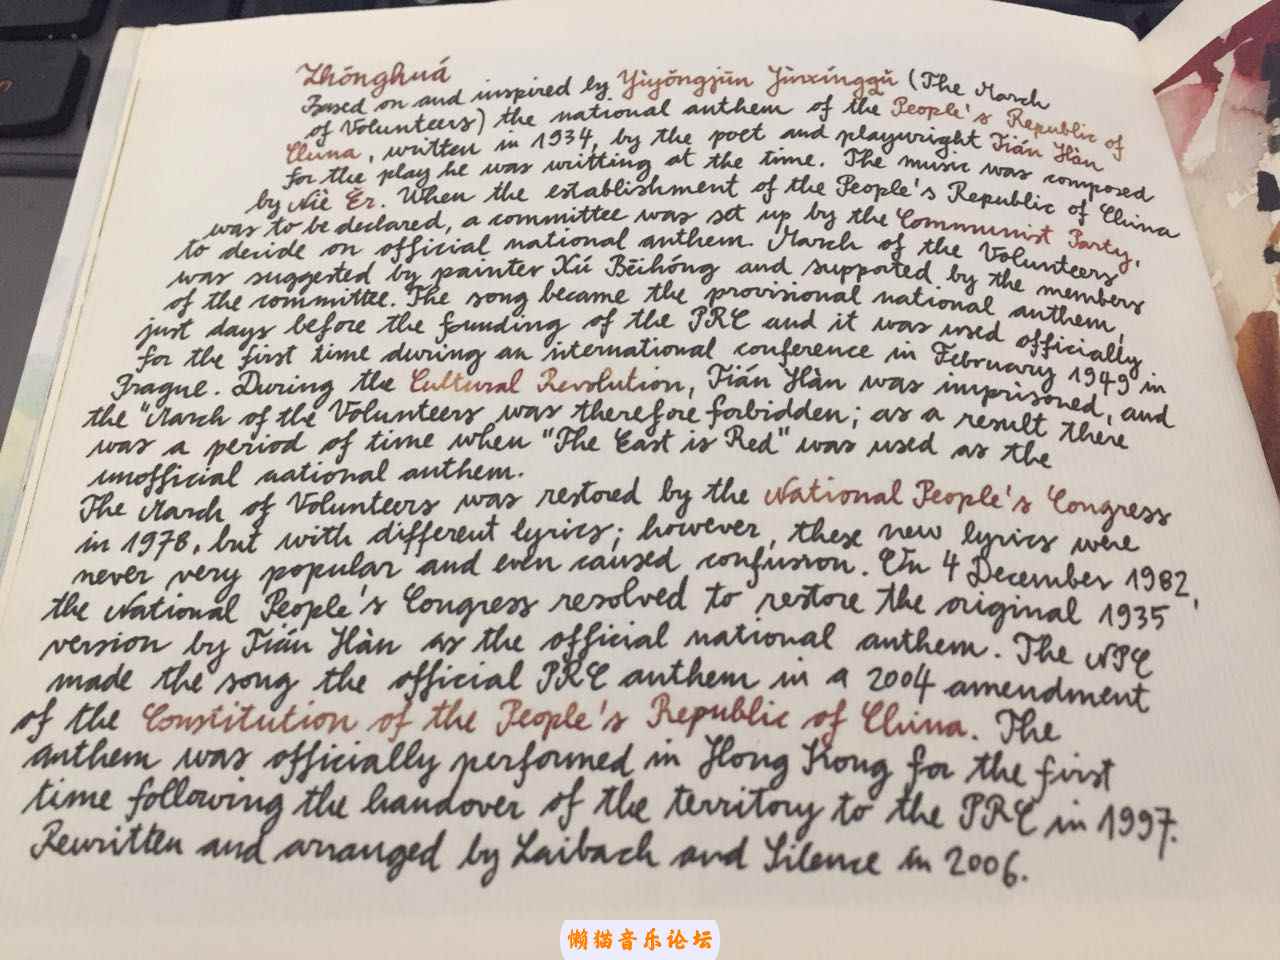 Zhōnghuá
Based on and inspired by Yìyǒngjūn Jìnxíngqǔ (The March
of Volunteers) the national anthem of the People's Republic of
China, written in 1934, by the poet and playwright Tián Hàn
for the play he was writting at the time. The music was composed
by Niè Ěr. When the establishment of the People's Republic of China
was to be declared, a committee was set up by the Communist Party,
to decide on official national anthem. March of the Volunteers
was suggested by painter Xú Bēihóng and supported by the members
of the committee. The song became the provisional national anthem,
just days before the founding of the PRC and it was used officially
for the first time during an international conference in February 1949 in
Prague. During the Cultural Revolution, Tián Hàn was imprisoned, and
the "March of the Volunteers was therefore forbidden; as a result there
was a period of time when "The East is Red" was used as the
unofficial national anthem.
The March of Volunteers was restored by the National People's Congress
in 1978, but with different lyrics; however, these new lyrics were
never very popular and even caused confusion. On 4 December 1982,
the National People's Congress resolved to restore the original 1935
version by Tián Hàn as the official national anthem. The NPC
made the song the official PRC anthem in a 2004 amendment
of the Constitution of the People's Republic of China. The
anthem was officially performed in Hong Kong for the first
time following the handover of the territory to the PRC in 1997.
Rewritten and arranged by Laibach and Silence in 2006.
懒猫音乐论坛